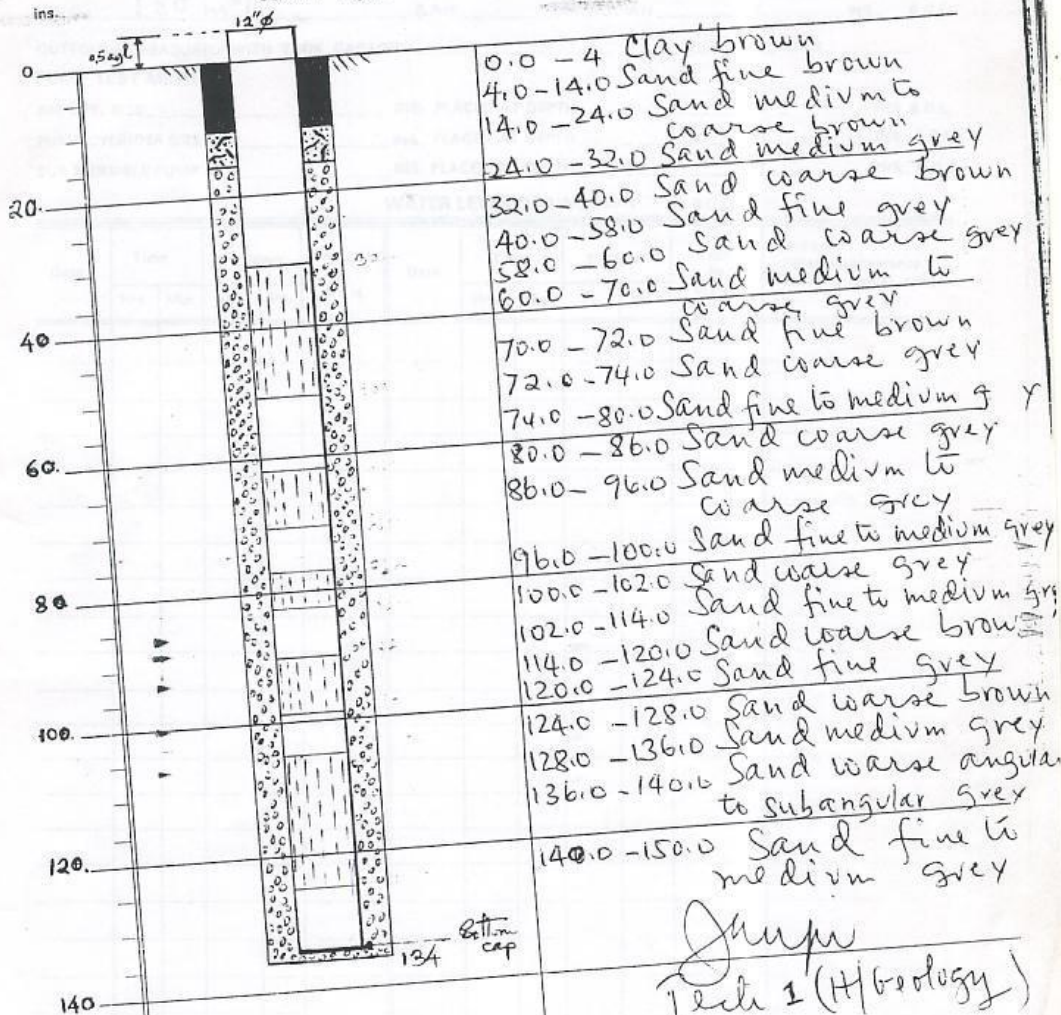 ins.
12"φ
0.5 agl
0
20.
40
60.
80
100.
120.
140
134
Bottom cap
0.0 - 4 Clay brown
4.0 - 14.0 Sand fine brown
14.0 - 24.0 Sand medium to
coarse brown
24.0 - 32.0 Sand medium grey
32.0 - 40.0 Sand coarse brown
40.0 - 58.0 Sand fine grey
58.0 - 60.0 Sand coarse grey
60.0 - 70.0 Sand medium to
coarse grey
70.0 - 72.0 Sand fine brown
72.0 - 74.0 Sand coarse grey
74.0 - 80.0 Sand fine to medium g y
80.0 - 86.0 Sand coarse grey
86.0 - 96.0 Sand medium to
coarse grey
96.0 - 100.0 Sand fine to medium grey
100.0 - 102.0 Sand coarse grey
102.0 - 114.0 Sand fine to medium gre
114.0 - 120.0 Sand coarse brown
120.0 - 124.0 Sand fine grey
124.0 - 128.0 Sand coarse brown
128.0 - 136.0 Sand medium grey
136.0 - 140.0 Sand coarse angular
to subangular grey
140.0 - 150.0 Sand fine to
medium grey
Tech 1 (H/Geology)